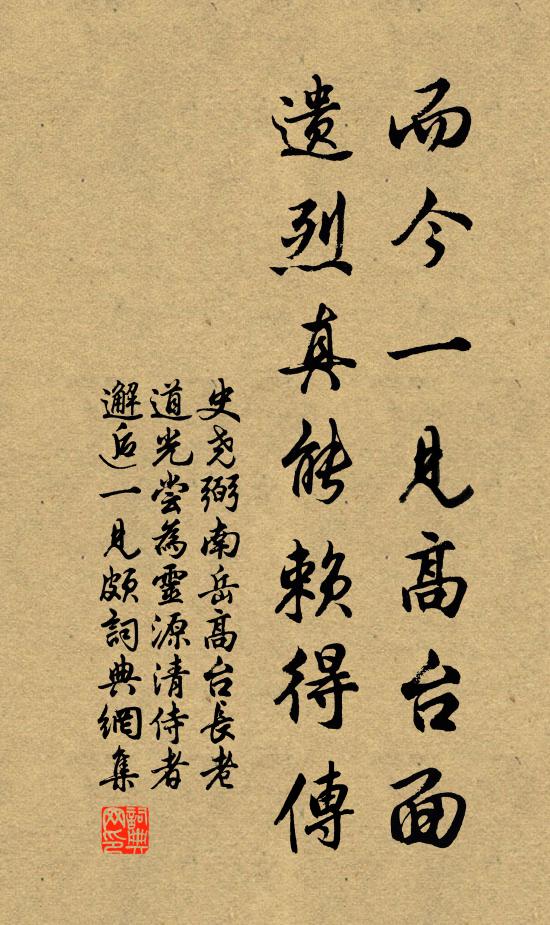 而今一見高台面
遺烈真能賴得傳
史尧弼南岳高台長老
道光尝為靈源清侍者
邂逅一見頗詞典網集
詞典网印